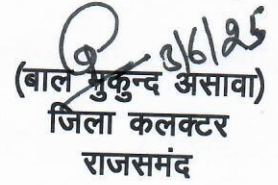 3/6/25
(बाल मुकुन्द असावा)
जिला कलक्टर
राजसमंद